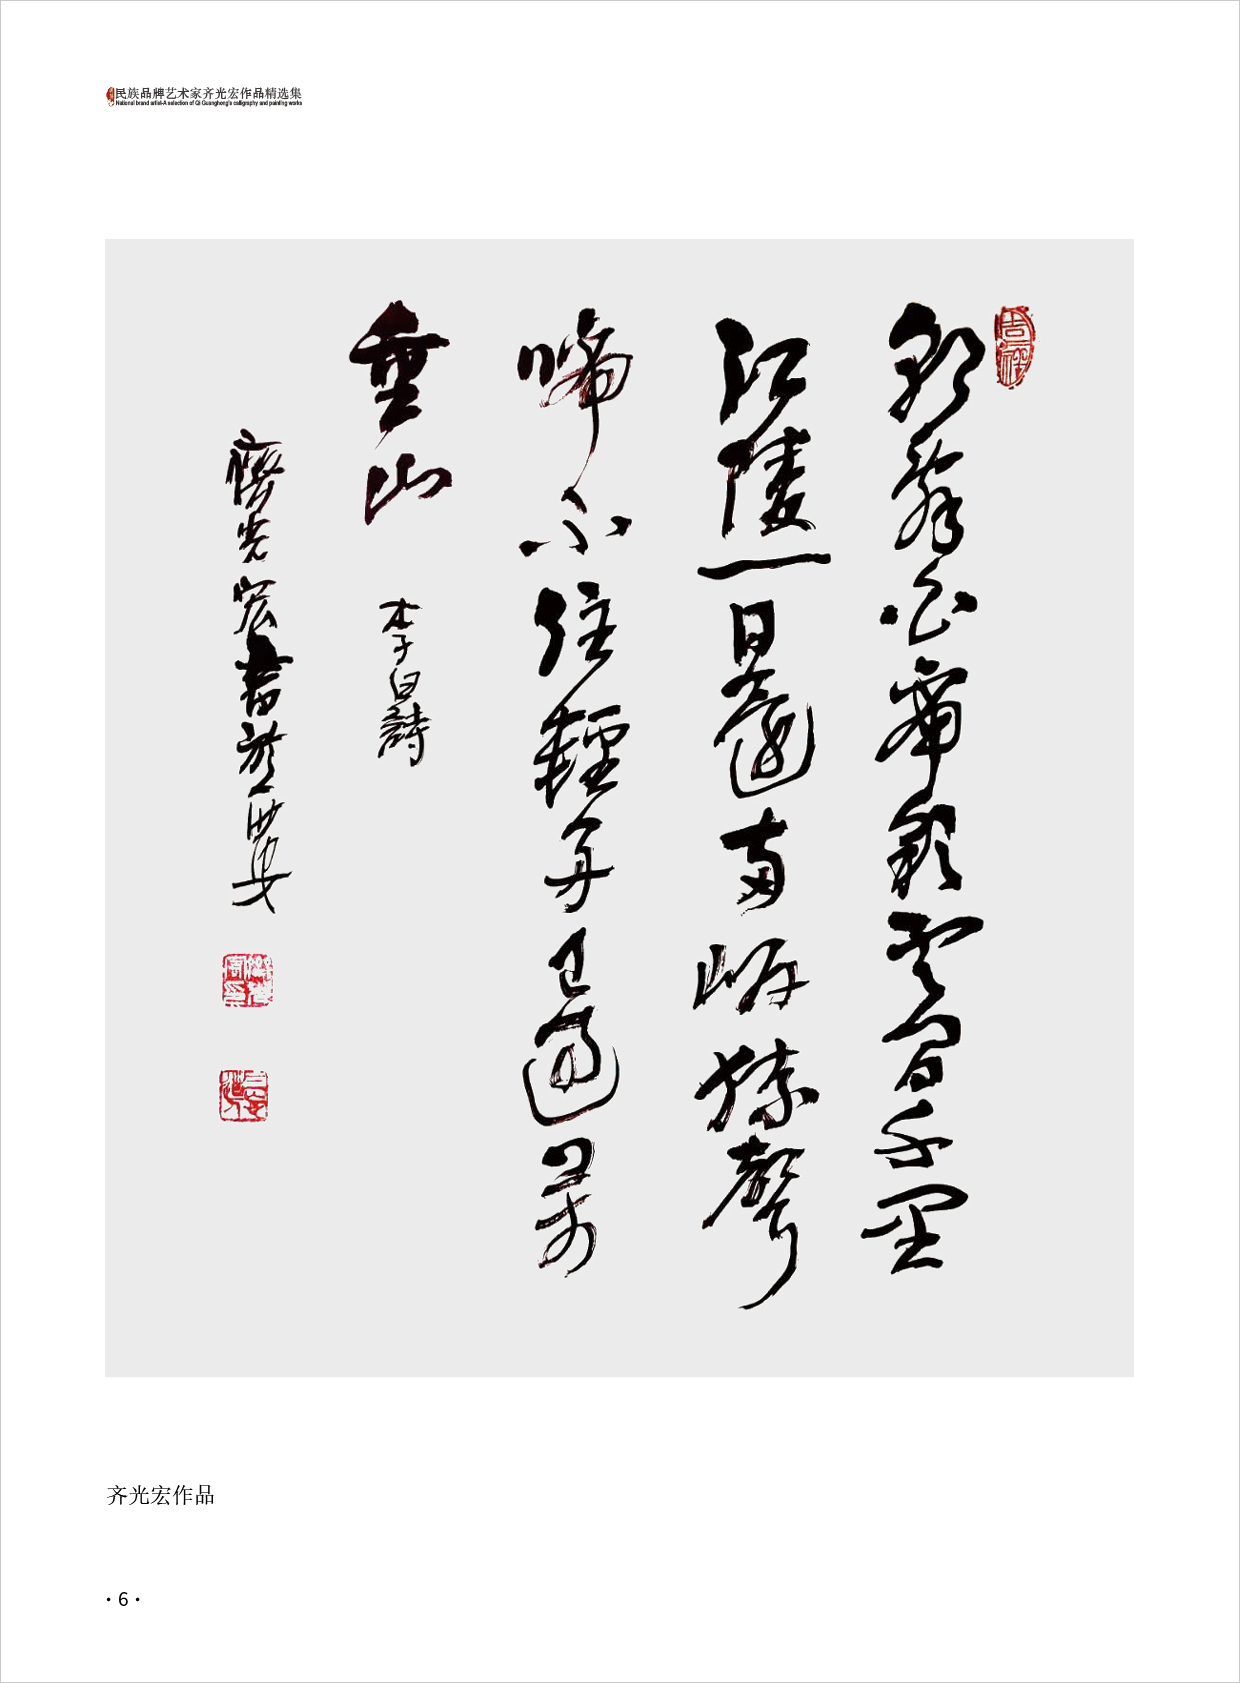 民族品牌艺术家齐光宏作品精选集
National brand artist-A selection of Qi Guanghong's calligraphy and painting works
朝辭白帝彩雲間千里
江陵一日還兩岸猿聲
啼不住輕舟已過萬
重山
李白詩
齊光宏書於西安
齐光宏作品
· 6 ·